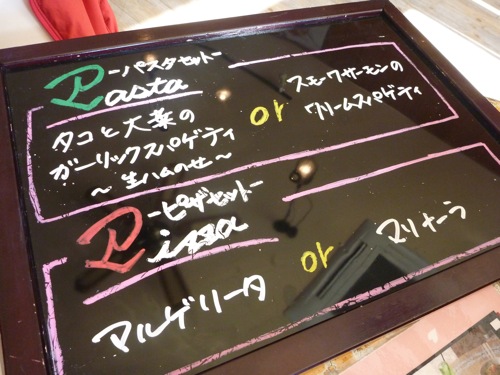 -パスタセット-
Pasta
タコと大葉の
ガーリックスパゲティ
~生ハムのせ~
or
スモークサーモンの
クリームスパゲティ
-ピザセット-
Pizza
マルゲリータ
or
マリナーラ